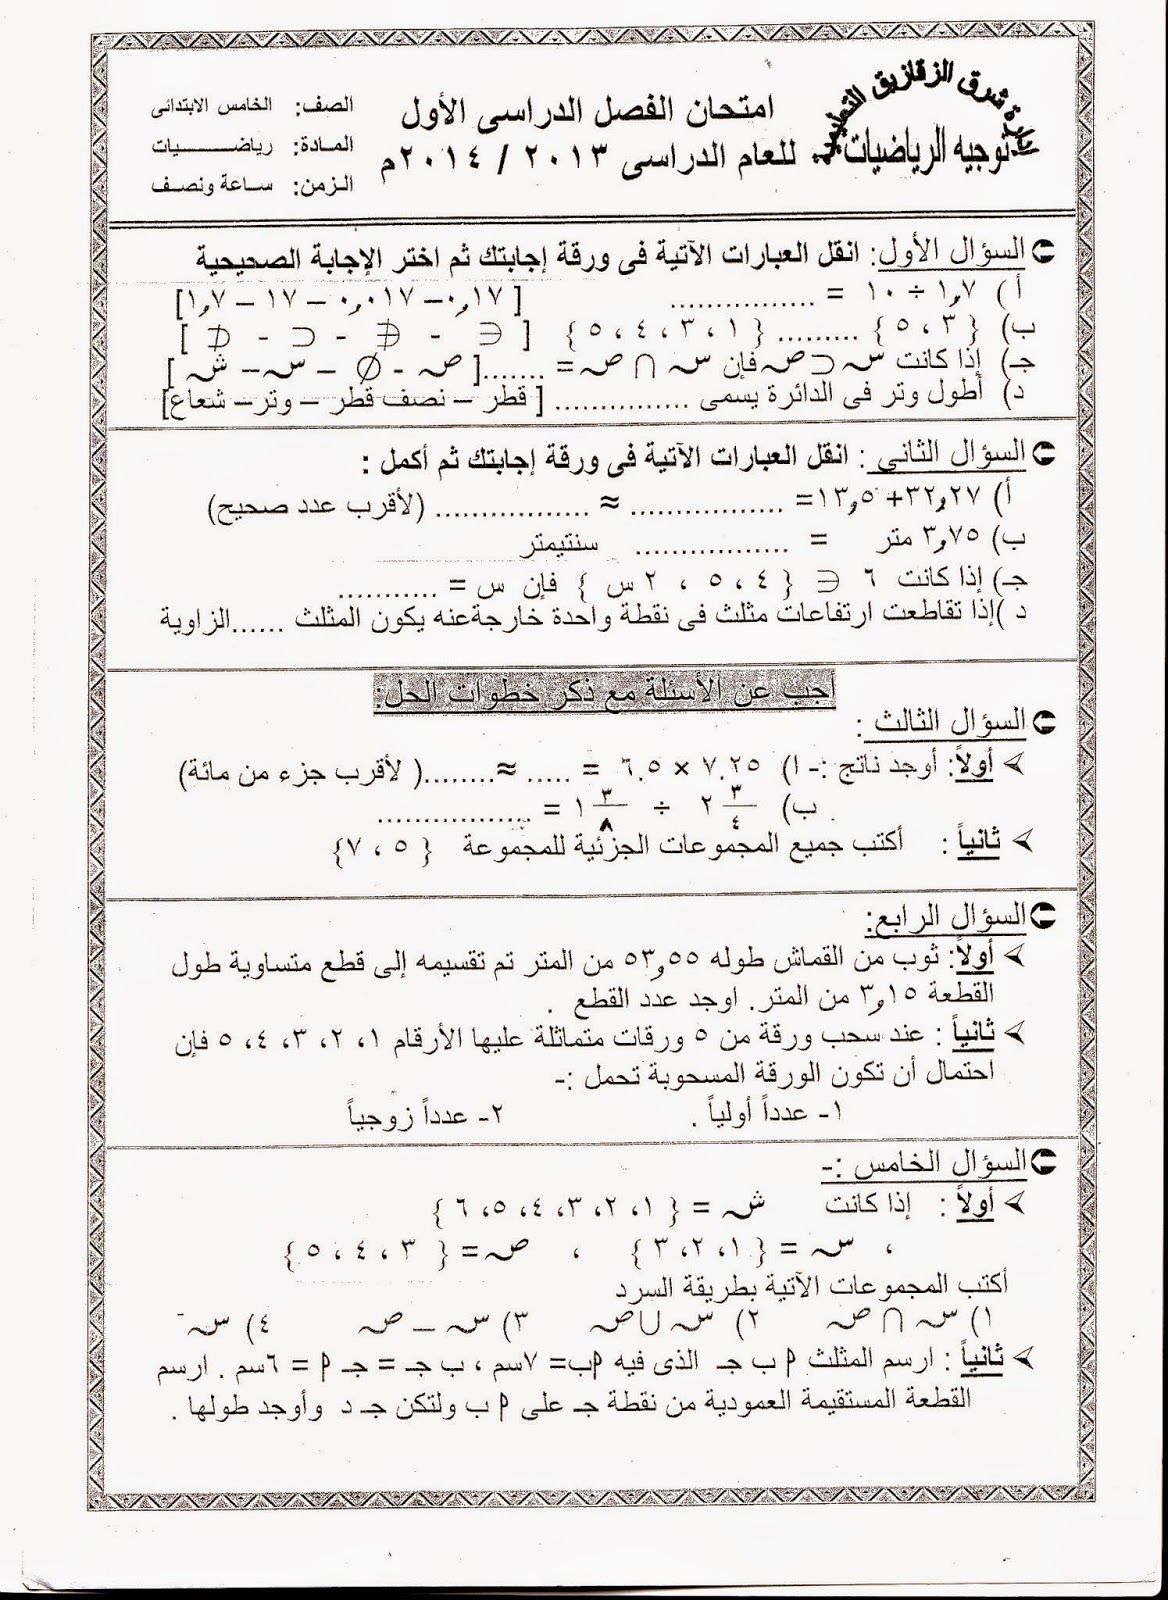 إدارة شرق الزقازيق التعليمية
توجيه الرياضيات
امتحان الفصل الدراسى الأول
للعام الدراسى ٢٠١٣ / ٢٠١٤م
الصف: الخامس الابتدائى
المادة: رياضـــــــيات
الزمن: ساعة ونصف
السؤال الأول: انقل العبارات الآتية فى ورقة إجابتك ثم اختر الإجابة الصحيحية
أ) ١,٧ ÷ ١٠ = ............... [ ٠,١٧ – ٠,٠١٧ – ١٧ – ١,٧]
ب) { ٣ ، ٥ } ......... { ١ ، ٣ ، ٤ ، ٥ } [ ∈ - ∉ - ⊂ - ⊄ ]
جـ) إذا كانت سـ ⊂ صـ فإن سـ ∩ صـ = .......[ صـ - ∅ – سـ – شـ ]
د) أطول وتر فى الدائرة يسمى ............... [ قطر – نصف قطر – وتر – شعاع]
السؤال الثانى : انقل العبارات الآتية فى ورقة إجابتك ثم أكمل :
أ) ٣٢,٢٧+ ١٣,٥= ................. ≈ ................. (لأقرب عدد صحيح)
ب) ٣,٧٥ متر = ................. سنتيمتر
جـ) إذا كانت ٦ ∈ { ٤ ، ٥ ، ٢ س } فإن س = ...........
د )إذا تقاطعت ارتفاعات مثلث فى نقطة واحدة خارجةعنه يكون المثلث ......الزاوية
أجب عن الأسئلة مع ذكر خطوات الحل:
السؤال الثالث :
أولاً: أوجد ناتج :- ا) ٧.٢٥ × ٦.٥ = ..... ≈........( لأقرب جزء من مائة)
ب) ٢ ٣/٤ ÷ ١ ٣/٨ = .................
ثانياً : أكتب جميع المجموعات الجزئية للمجموعة { ٥ ، ٧}
السؤال الرابع:
أولاً: ثوب من القماش طوله ٥٣,٥٥ من المتر تم تقسيمه إلى قطع متساوية طول
القطعة ٣,١٥ من المتر. اوجد عدد القطع .
ثانياً : عند سحب ورقة من ٥ ورقات متماثلة عليها الأرقام ١، ٢، ٣، ٤، ٥ فإن
احتمال أن تكون الورقة المسحوبة تحمل :-
١- عدداً أولياً . ٢- عدداً زوجياً
السؤال الخامس :-
أولاً : إذا كانت شـ = { ١، ٢، ٣، ٤، ٥، ٦ }
، سـ = { ١، ٢، ٣ } ، صـ = { ٣ ، ٤ ، ٥ }
أكتب المجموعات الآتية بطريقة السرد
١) سـ ∩ صـ ٢) سـ ∪ صـ ٣) سـ – صـ ٤) سـَ
ثانياً : ارسم المثلث أ ب جـ الذى فيه أب= ٧سم ، ب جـ = جـ أ = ٦سم . ارسم
القطعة المستقيمة العمودية من نقطة جـ على أ ب ولتكن جـ د وأوجد طولها .